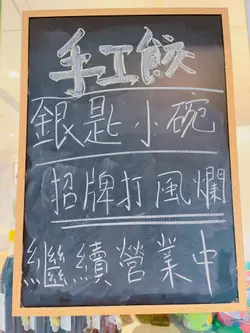 手工餃
銀匙小碗
招牌打風爛
繼續營業中